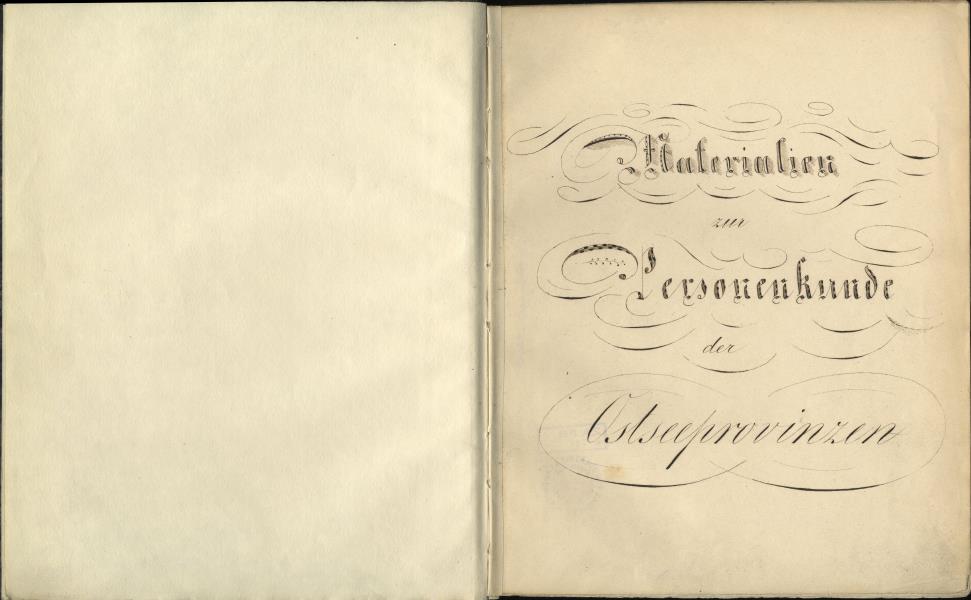 Materialien
zur
Personenkunde
der
Ostseeprovinzen